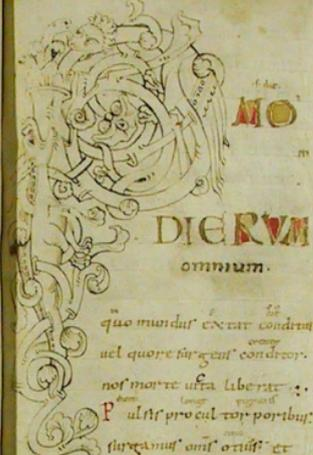 P MO
DIERUM
omnium.
quo mundus extat conditus
uel quo resurgens conditor.
nos morte uicta liberat
Pulsis procul torporibus
surgamus oms otius et